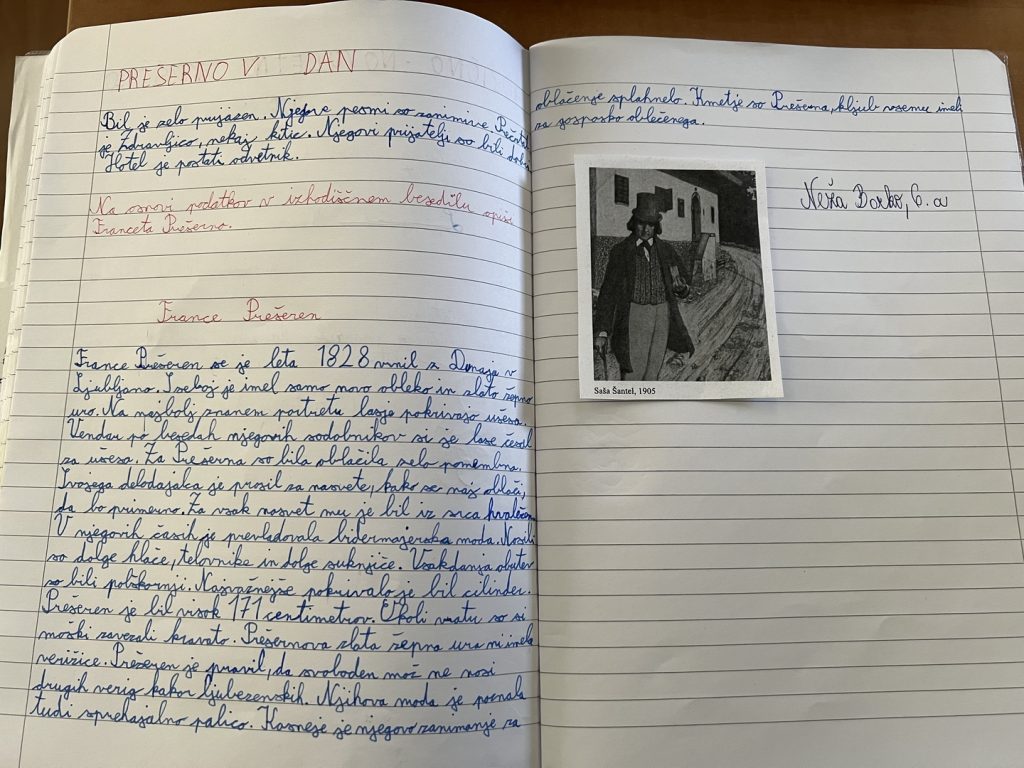 PREŠERNO V DAN
Bil je zelo prijazen. Njegove pesmi so zanimive. Prečrtal
je Zdravljico, nekaj kitic. Njegovi prijatelji so bili dobri.
Hotel je postati odvetnik.
Na osnovi podatkov v izhodiščnem besedilu opiši
Franceta Prešerna.
France Prešeren
France Prešeren se je leta 1828 vrnil z Dunaja v
Ljubljano. S seboj je imel samo novo obleko in zlato žepno
uro. Na najbolj znanem portretu lasje pokrivajo ušesa.
Vendar po besedah njegovih sodobnikov si je lase česal
za ušesa. Za Prešerna so bila oblačila zelo pomembna.
Svojega delodajalca je prosil za nasvete, kako se naj obleči,
da bo primerno. Za vsak nasvet mu je bil iz srca hvaležen.
V njegovih časih je prevladovala bidermajerska moda. Nosili
so dolge hlače, telovnike in dolge suknjiče. Vsakdanja obutev
so bili polškornji. Najvažnejše pokrivalo je bil cilinder.
Prešeren je bil visok 171 centimetrov. Okoli vratu so si
moški zavezali kravato. Prešernova zlata žepna ura ni imela
verižice. Prešeren je pravil, da svoboden mož ne nosi
drugih verig kakor ljubezenskih. Njihova moda je poznala
tudi sprehajalno palico. Kasneje je njegovo zanimanje za
oblačenje splahnelo. Kmetje so Prešerna, kljub vsemu imeli
za gosposko oblečenega.
Saša Šantel, 1905
Neža 6. a